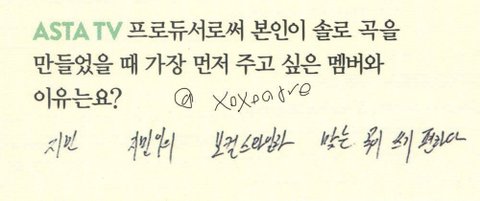 ASTA TV 프로듀서로써 본인이 솔로 곡을
만들었을 때 가장 먼저 주고 싶은 멤버와
이유는요?
@ xoxoadre
지민 지민이의 보컬스타일과 맞는 곡 쓰기 편하다